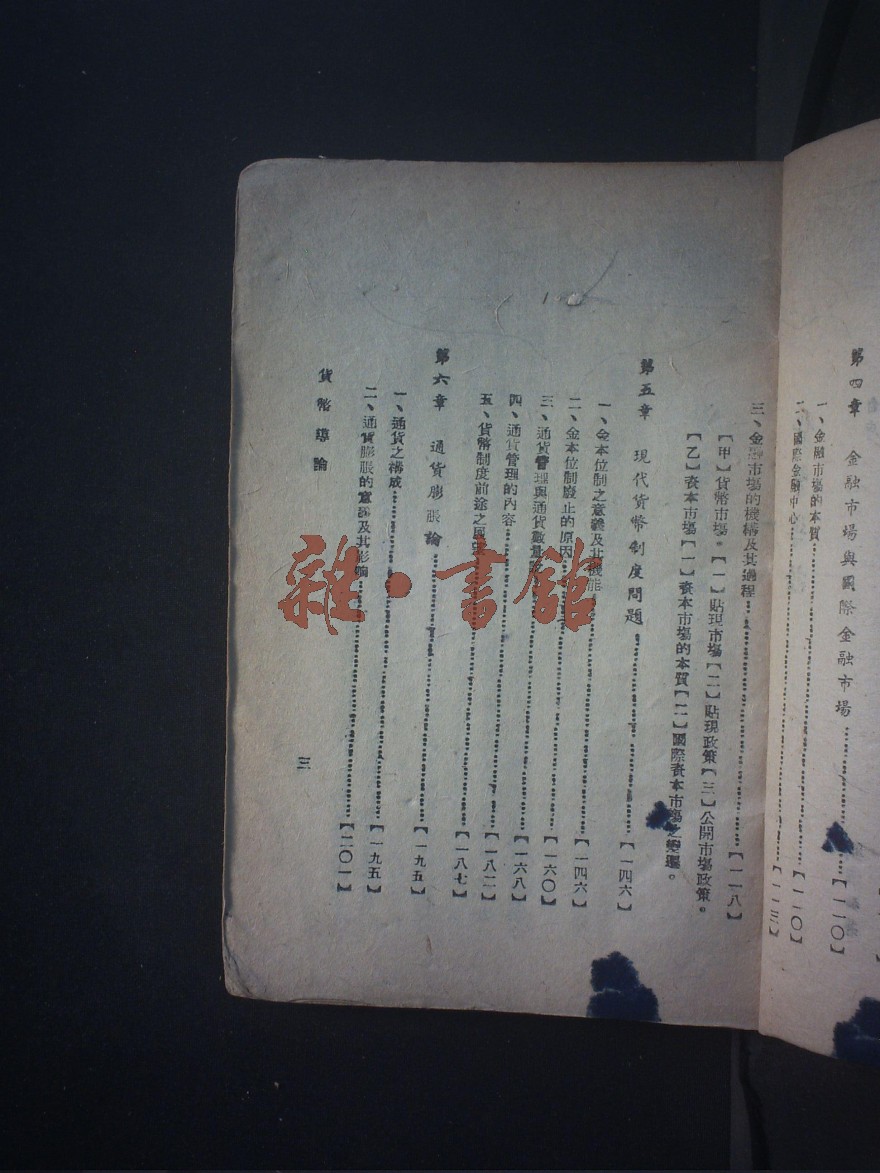 第四章 金融市場與國際金融市場……【一一〇】
一、金融市場的本質……【一一〇】
二、國際金融中心……【一一三】
三、金融市場的機構及其過程……【一一八】
【甲】貨幣市場。【一】貼現市場【二】貼現政策【三】公開市場政策。
【乙】資本市場【一】資本市場的本質【二】國際資本市場之變遷。
第五章 現代貨幣制度問題……【一四六】
一、金本位制之意義及其機能……【一四六】
二、金本位制廢止的原因……【一六〇】
三、通貨管理與通貨數量……【一六八】
四、通貨管理的內容……【一八二】
五、貨幣制度前途之展望……【一八七】
第六章 通貨膨脹論……【一九五】
一、通貨之構成……【一九五】
二、通貨膨脹的意義及其影響……【二〇一】
貨幣導論
三
雜·書館